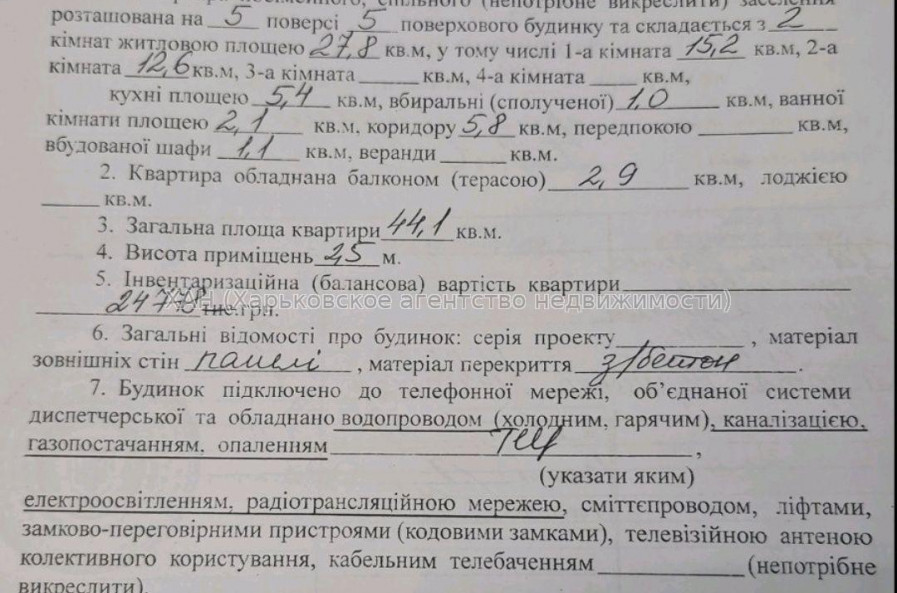 посімейного, спільного (непотрібне викреслити) заселення
розташована на 5 поверсі 5 поверхового будинку та складається з 2
кімнат житловою площею 27,8 кв.м, у тому числі 1-а кімната 15,2 кв.м, 2-а
кімната 12,6 кв.м, 3-а кімната ______ кв.м, 4-а кімната _____ кв.м,
кухні площею 5,4 кв.м, вбиральні (сполученої) 1,0 кв.м, ванної
кімнати площею 2,1 кв.м, коридору 5,8 кв.м, передпокою _________ кв.м,
вбудованої шафи 1,1 кв.м, веранди ______ кв.м.
2. Квартира обладнана балконом (терасою) 2,9 кв.м, лоджією
_____ кв.м.
3. Загальна площа квартири 44,1 кв.м.
4. Висота приміщень 2,5 м.
5. Інвентаризаційна (балансова) вартість квартири
24778 тис.грн.
ХАН (Харьковское агентство недвижимости)
6. Загальні відомості про будинок: серія проекту____________, матеріал
зовнішніх стін панелі, матеріал перекриття з/бетон.
7. Будинок підключено до телефонної мережі, об’єднаної системи
диспетчерської та обладнано водопроводом (холодним, гарячим), каналізацією,
газопостачанням, опаленням ТЕЦ,
(указати яким)
електроосвітленням, радіотрансляційною мережею, сміттєпроводом, ліфтами,
замково-переговірними пристроями (кодовими замками), телевізійною антеною
колективного користування, кабельним телебаченням______________(непотрібне
викреслити).